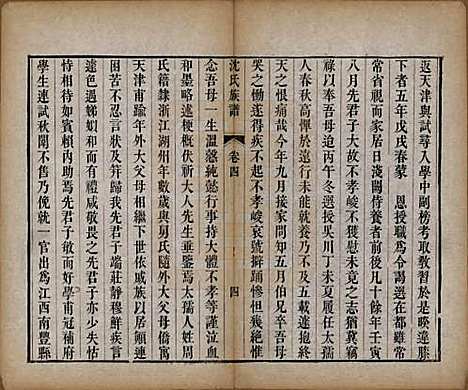 返天津與試尋入學中副榜考取教習於是暌違膝
下者五年戊戌春蒙　恩授職爲令謁選在都雖常
常省視而家居日淺闕侍養者前後凡十餘年壬寅
八月先君子大故不孝峻未獲躬親慰未竟之志猶冀
祿以奉吾母迨丙午冬選授吳川丁未夏履任太孺
人春秋高憚於遠行未能就養不及五載遂抱終
天之恨痛哉今年九月接家諱以五月伯兄卒吾母
哭之慟遂得疾不起不孝峻哀號擗踊慘怛幾絶
念吾母一生溫慈純懿行事持大體不孝等謹泣血
和墨略述梗概伏祈大人先生垂鑒焉太孺人姓屠
氏籍隸浙江湖州年數歲與舅氏隨外大父母僑居
天津甫踰年外大父母相繼下世依戚屬以居歷諸
困苦不形於言及笄歸我先君子端莊靜穆鮮疾言
遽色遇娣姒和而有禮咸敬畏之先君子亦少失怙
恃相待如賓積内助焉先君子敦行好學甫冠補府
學生連試秋闈不售乃俛就一官出爲江西南豐縣
沈氏族譜
卷四
四